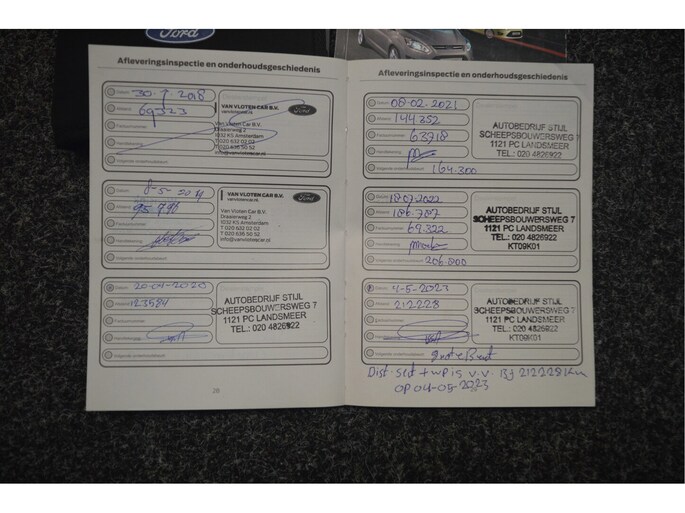 Ford
Afleveringsinspectie en onderhoudsgeschiedenis
Datum 30-7-2018
69323
VAN VLOTEN CAR B.V.
vanvlotencar.nl
Ford
Van Vloten Car B.V.
Draaierweg 2
1032 KS Amsterdam
T 020 632 02 02
F 020 636 50 52
info@vanvlotencar.nl
Datum 8-5-2019
95796
VAN VLOTEN CAR B.V.
vanvlotencar.nl
Ford
Van Vloten Car B.V.
Draaierweg 2
1032 KS Amsterdam
T 020 632 02 02
F 020 636 50 52
info@vanvlotencar.nl
20-04-2020
123584
AUTOBEDRIJF STIJL
SCHEEPSBOUWERSWEG 7
1121 PC LANDSMEER
TEL.: 020 4826922
28
Afleveringsinspectie en onderhoudsgeschiedenis
08-02-2021
144.352
Factuurnummer 63718
164.300
AUTOBEDRIJF STIJL
SCHEEPSBOUWERSWEG 7
1121 PC LANDSMEER
TEL.: 020 4826922
18072022
186.707
Factuurnummer 69.322
Volgende onderhoudsbeurt 206.800
AUTOBEDRIJF STIJL
SCHEEPSBOUWERSWEG 7
1121 PC LANDSMEER
TEL.: 020 4826922
KT09K01
4-5-2023
212228
Volgende onderhoudsbeurt grote Beurt
AUTOBEDRIJF STIJL
SCHEEPSBOUWERSWEG 7
1121 PC LANDSMEER
TEL.: 020 4826922
KT09K01
Dist. set + wp is v.v. Bij 212228 km
op 04-05-2023